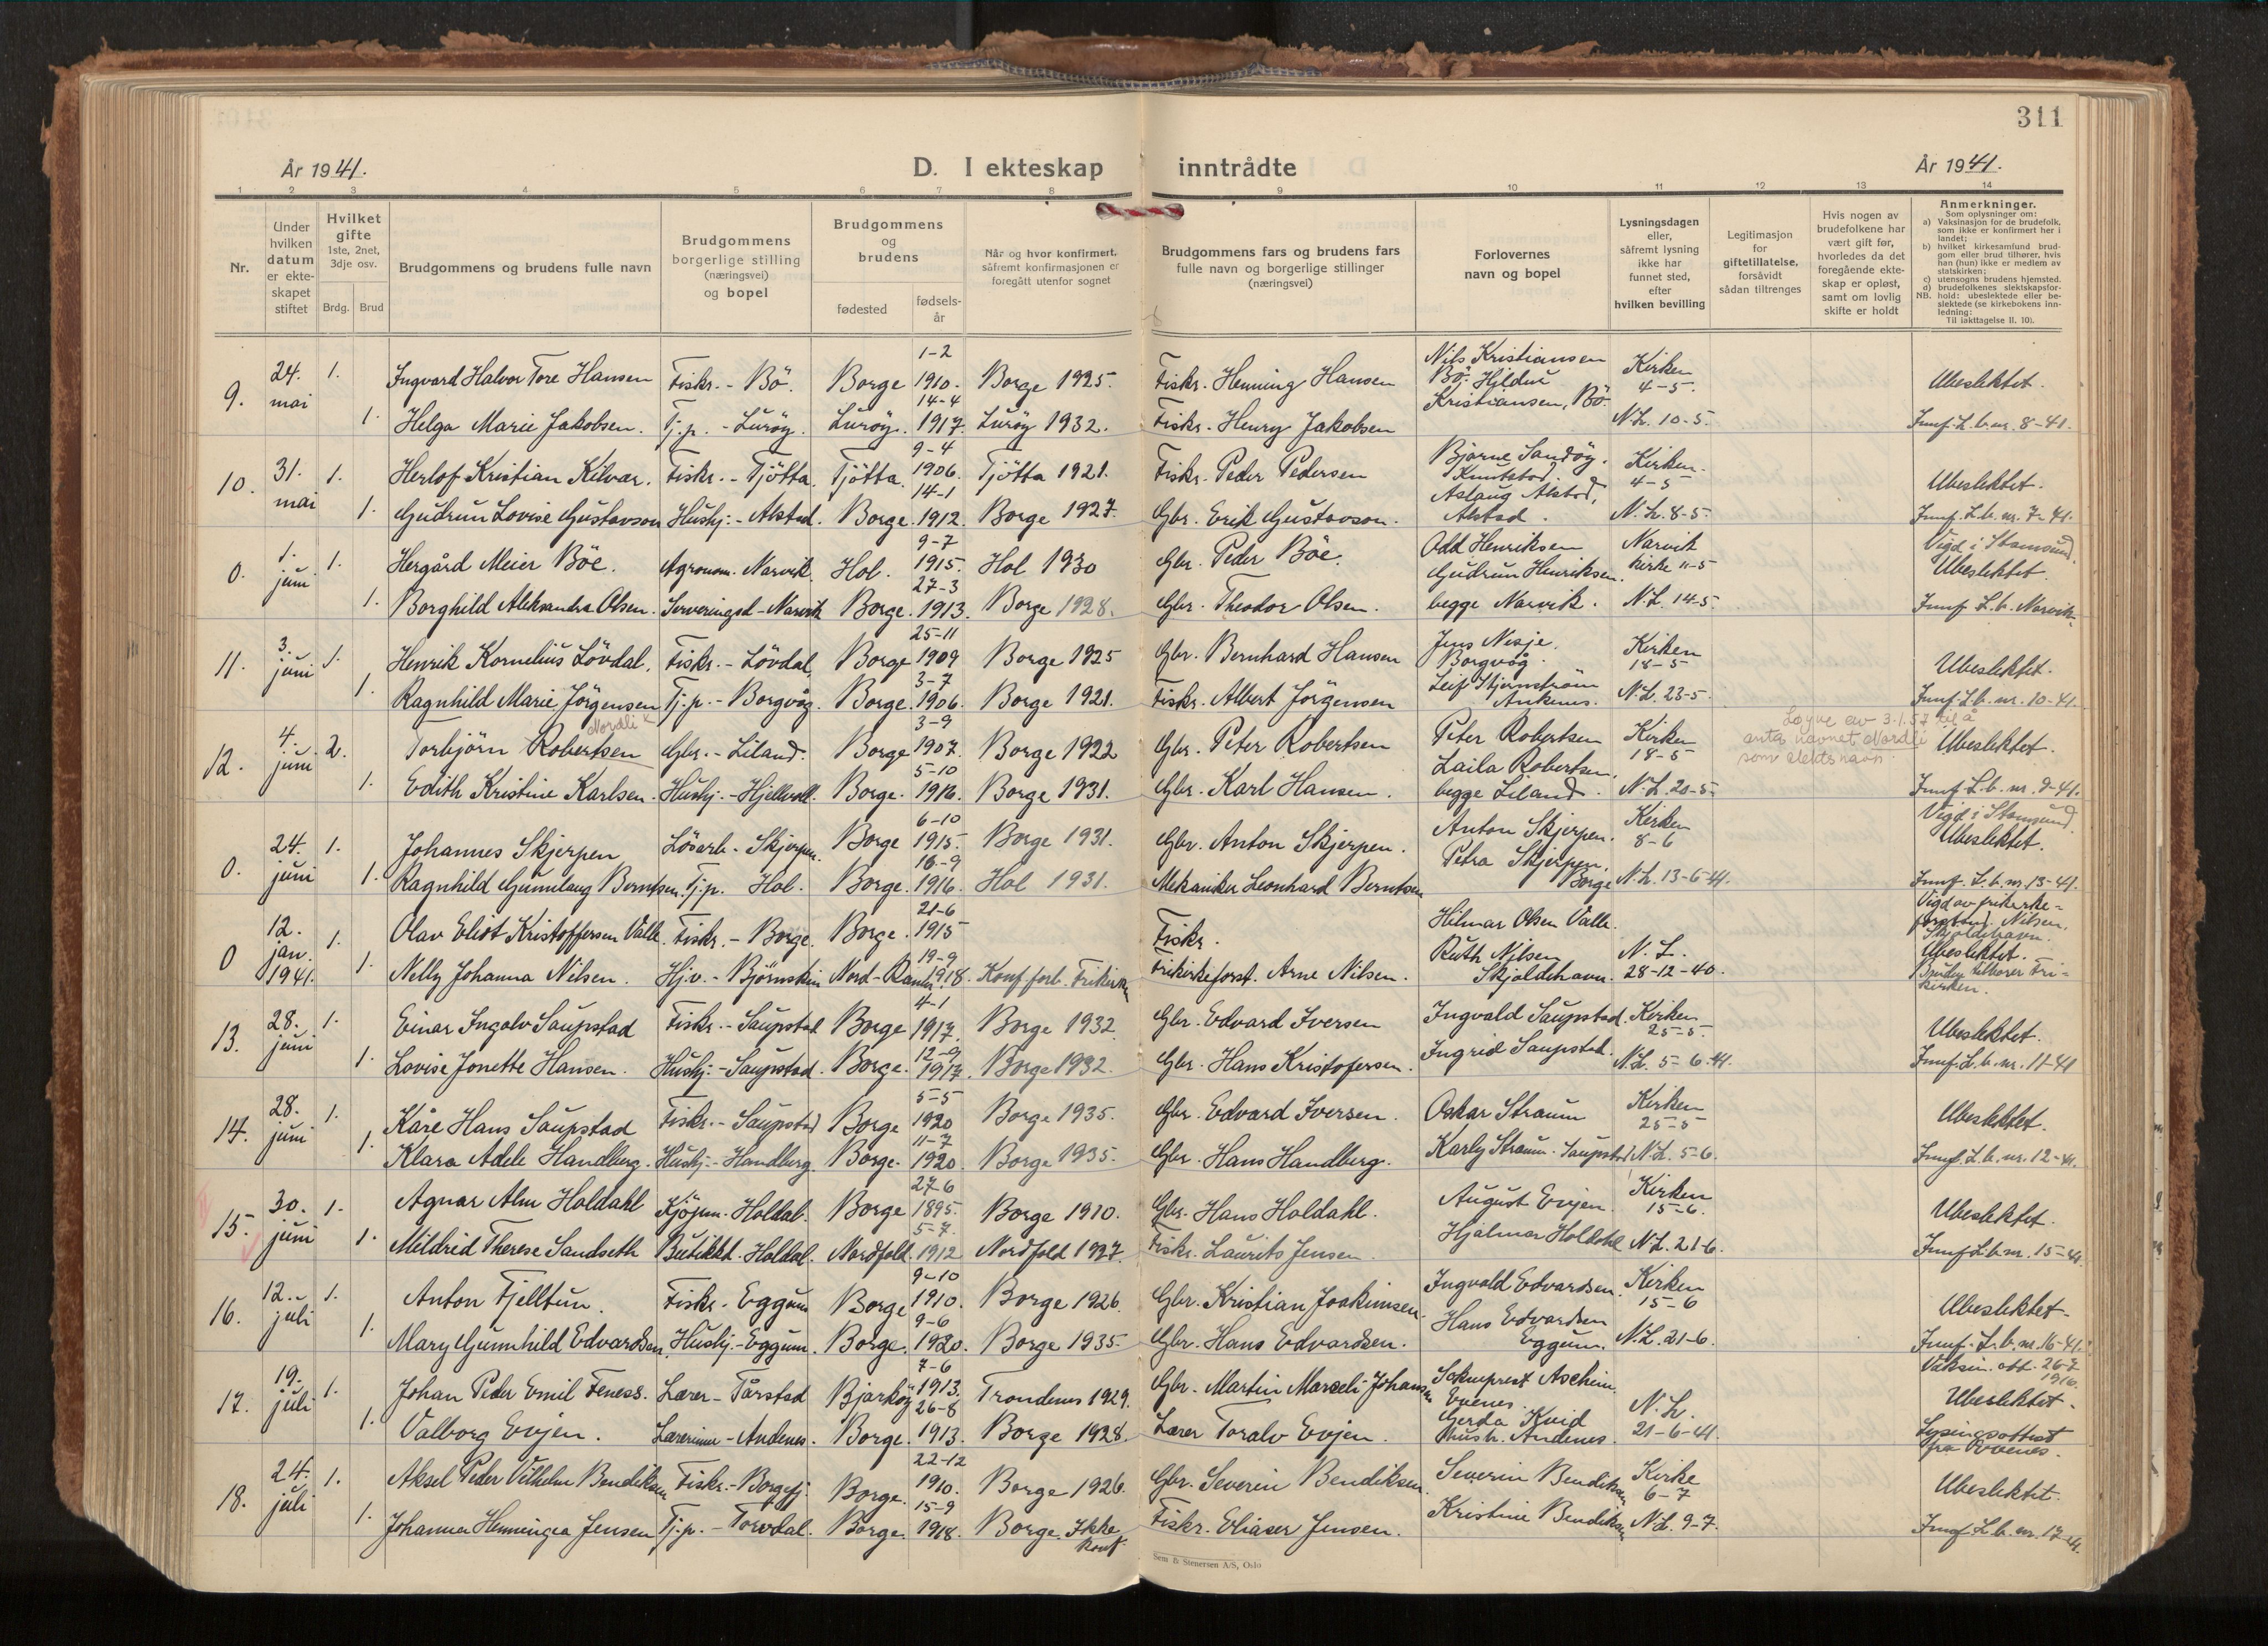 311
År 1941.
D. I ekteskap inntrådte
År 1941.
1 2 3 4 5 6 7 8 9 10 11 12 13 14
Nr.
Under hvilken datum er ekteskapet stiftet
Hvilket gifte 1ste, 2net, 3dje osv.
Brdg. Brud
Brudgommens og brudens fulle navn
Brudgommens borgerlige stilling (næringsvei) og bopel
Brudgommens og brudens
fødested
fødselsår
Når og hvor konfirmert, såfremt konfirmasjonen er foregått utenfor sognet
Brudgommens fars og brudens fars fulle navn og borgerlige stillinger (næringsvei)
Forlovernes navn og bopel
Lysningsdagen eller, såfremt lysning ikke har funnet sted, efter hvilken bevilling
Legitimasjon for giftetillatelse, forsåvidt sådan tiltrenges
Hvis nogen av brudefolkene har vært gift før, hvorledes da det foregående ekteskap er opløst, samt om lovlig skifte er holdt
Anmerkninger.
Som oplysninger om:
a) Vaksinasjon for de brudefolk, som ikke er konfirmert her i landet;
b) hvilket kirkesamfund brudgom eller brud tilhører, hvis han (hun) ikke er medlem av statskirken;
c) utensogns brudens hjemsted.
d) brudefolkenes slektskapsforhold: ubeslektede eller beslektede (se kirkebokens innledning:
NB. Til iakttagelse II. 10).
9. 24. mai 1. Ingvard Halvor Tore Hansen Fiskr. - Bö. Borge 1-2 1910. Borge 1925. Fiskr. Henning Hansen Nils Kristiansen Bö. Hildur Kristiansen, Bö. Kirken 4-5. Ubeslektet.
1. Helga Marie Jakobsen. Tj.p. - Luröy. Luröy. 14-4 1917. Luröy 1932. Fiskr. Henry Jakobsen N.L. 10-5. Innf. L.b. nr. 8-41.
10. 31. mai 1. Herlof Kristian Kilvær. Fiskr. - Tjötta. Tjötta. 9-4 1906. Tjötta 1921. Fiskr. Peder Pedersen Bjarne Sandöy. Knutstad. Kirken. 4-5 Ubeslektet.
1. Gudrun Lovise Gustavson Hushj. - Alstad. Borge. 14-1 1912. Borge 1927. Gbr. Erik Gustavson. Aslaug Alstad, Alstad. N.L. 8-5. Innf. L.b. nr. 7-41.
0. 1. juni 1. Hergård Meier Böe. Agronom. Narvik. Hol. 9-7 1915. Hol 1930 Gbr. Peder Böe. Odd Henriksen Narvik Kirke 11-5 Vigd i Stamsund. Ubeslektet.
1. Borghild Aleksandra Olsen. Serveringsd - Narvik Borge. 27-3 1913. Borge 1928. Gbr. Theodor Olsen. Gudrun Henriksen. begge Narvik. N.L. 14-5. Innf. L.b. Narvik.
11. 3. juni 1. Henrik Kornelius Lövdal. Fiskr. - Lövdal. Borge 25-11 1909 Borge 1925 Gbr. Bernhard Hansen Jens Nesje. Borgvåg. Kirken 18-5 Ubeslektet.
1. Ragnhild Marie Jörgensen Tj.p. - Borgvåg. Borge. 3-7 1906. Borge 1921. Fiskr. Albert Jörgensen Leif Stjernström Ankenes. N.L. 23-5. Innf. L.b. nr. 10-41.
Nordli x
12. 4. juni 2. Torbjörn Robertsen Gbr. - Liland. Borge 3-9 1907. Borge 1922 Gbr. Peter Robertsen Peter Robertsen Kirken 18-5 Løyve av 3.1.57 til å anta navnet Nordli som slektsnavn. Ubeslektet.
1. Edith Kristine Karlsen. Hushj. - Hjellvoll. Borge. 5-10 1916. Borge 1931. Gbr. Karl Hansen. Laila Robertsen, begge Liland. N.L. 20-5. Innf. L.b. nr. 9-41.
0. 24. juni 1. Johannes Skjerpen Lösarb - Skjerpen. Borge 6-10 1915. Borge 1931. Gbr. Anton Skjerpen. Anton Skjerpen. Kirken 8-6 Vigd i Stamsund. Ubeslektet.
1. Ragnhild Gunnlaug Berntsen. Tj.p. Hol. Borge. 16-9 1916. Hol 1931. Mekaniker Leonhard Berntsen Petra Skjerpen. Borge N.L. 13-6-41. Innf. L.b. nr. 13-41.
0 12. jan. 1941. 1. Olav Eliot Kristoffersen Valle. Fiskr. - Borge. Borge. 21-6 1915 Fiskr. Hilmar Olsen Valle. Vigd av frikirkeforstand. Nilsen, Skjoldehavn. Ubeslektet.
1. Nelly Johanna Nilsen. Hj.v. - Björnskin Nord-Rana. 19-9 1918. Konf. forb. Frikirken Frikirkeforst. Arne Nilsen. Ruth Nilsen Skjoldehavn. N.L. 28-12-40. Bruden tilhører Frikirken.
13. 28. juni 1. Einar Ingolv Saupstad Fiskr. - Saupstad Borge 4-1 1917. Borge 1932. Gbr. Edvard Iversen Ingvald Saupstad. Kirken 25-5. Ubeslektet.
1. Lovise Jonette Hansen. Hushj. - Saupstad. Borge. 12-9 1917. Borge 1932. Gbr. Hans Kristofersen. Ingrid Saupstad. N.L. 5-6-41. Innf. L.b. nr. 11-41
14. 28. juni 1. Kåre Hans Saupstad Fiskr. - Saupstad Borge 5-5 1920 Borge 1935. Gbr. Edvard Iversen. Oskar Straum Kirken 25-5 Ubeslektet.
1. Klara Adele Handberg. Hushj. - Handberg. Borge. 11-7 1920. Borge 1935. Gbr. Hans Handberg. Karly Straum. Saupstad N.L. 5-6. Innf. L.b. nr. 12-41.
15. 30. juni 1. Agnar Alm Holdahl Kjöpm. Holdal. Borge 27-6 1895. Borge 1910. Gbr. Hans Holdahl. August Evjen. Kirken 15-6. Ubeslektet.
1. Mildrid Therese Sandseth Butikkd. Holdal. Nordfold. 5-7. 1912 Nordfold 1927. Fiskr. Laurits Jensen. Hjalmar Holdahl N.L. 21-6. Innf L.b. nr. 15-41.
16. 12. juli 1. Anton Fjelltun. Fiskr. Eggum Borge 9-10 1910. Borge 1926. Gbr. Kristian Joakimsen. Ingvald Edvardsen. Kirken 15-6 Ubeslektet.
1. Mary Gunnhild Edvardsen. Hushj. - Eggum. Borge. 9-6 1920. Borge 1935. Gbr. Hans Edvardsen. Hans Edvardsen Eggum. N.L. 21-6. Innf. L.b. nr. 16-41.
17. 19. juli 1. Johan Peder Emil Feness. Lærer - Tårstad Bjarköy 7-6 1913. Trondenes 1929. Gbr. Martin Marseli Johansen Sokneprest Aschim. Evenes. N.L. 21-6-41. Vaksin. att. 26-7 1916. Ubeslektet.
1. Valborg Evjen. Lærerinne - Andenes. Borge. 26-8 1913. Borge 1928. Lærer Toralv Evjen. Gerda Kvid Andenes. Lysingsattest fra Evenes.
18. 24. juli 1. Aksel Peder Vilhelm Bendiksen Fiskr. - Borgefj. Borge. 22-12 1910. Borge 1926. Gbr. Severin Bendiksen. Severin Bendiksen Kirke 6-7 Ubeslektet.
1. Johanna Henningea Jensen Tj.p. - Torvdal. Borge. 15-9 1918. Borge. Ikke konf. Fiskr. Eliaser Jensen. Kristine Bendiksen N.L. 9-7. Innf L.b. nr. 17-41.
Sem & Stenersen A/S, Oslo